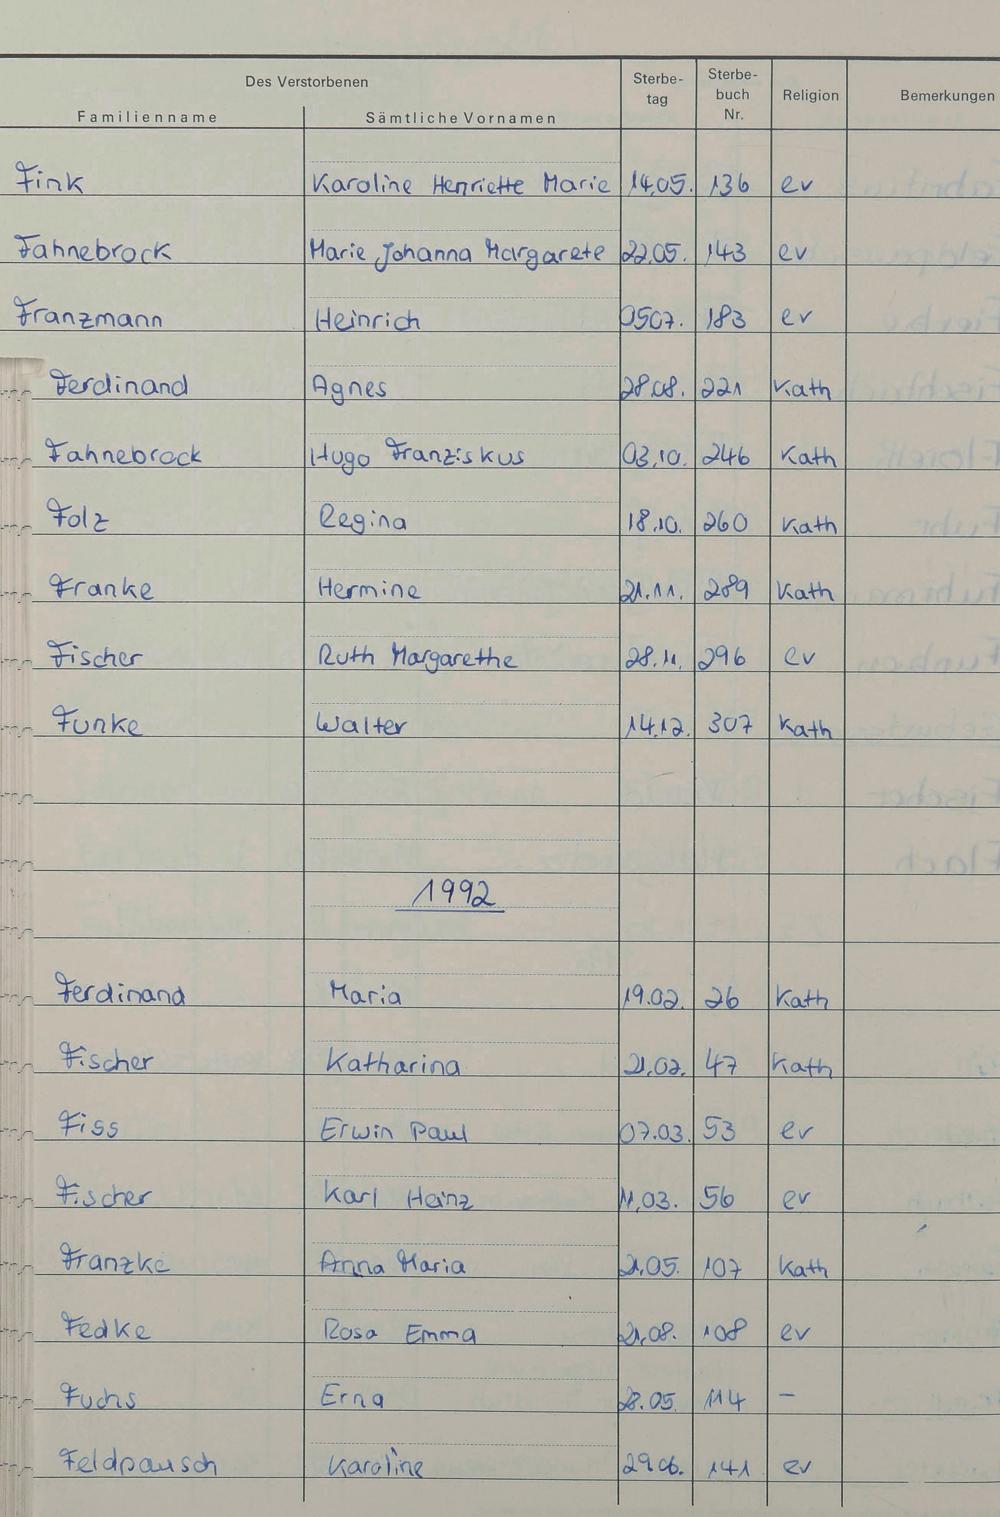 Des Verstorbenen
Familienname Sämtliche Vornamen Sterbe-tag Sterbe-buch Nr. Religion Bemerkungen
Fink Karoline Henriette Marie 14.05. 136 ev
Fahnebrock Marie Johanna Margarete 22.05. 143 ev
Franzmann Heinrich 0507. 183 ev
Ferdinand Agnes 28.08. 221 Kath
Fahnebrock Hugo Franziskus 03.10. 246 Kath
Folz Regina 18.10. 260 Kath
Franke Hermine 21.11. 289 Kath
Fischer Ruth Margarethe 28.11. 296 ev
Funke Walter 14.12. 307 Kath
1992
Ferdinand Maria 19.02. 26 Kath
Fischer Katharina 21.02. 47 Kath
Fiss Erwin Paul 07.03. 53 ev
Fischer Karl Heinz 11.03. 56 ev
Franzke Anna Maria 21.05. 107 Kath
Fedke Rosa Emma 21.08. 108 ev
Fuchs Erna 28.05. 114 –
Feldpausch Karoline 29.06. 141 ev